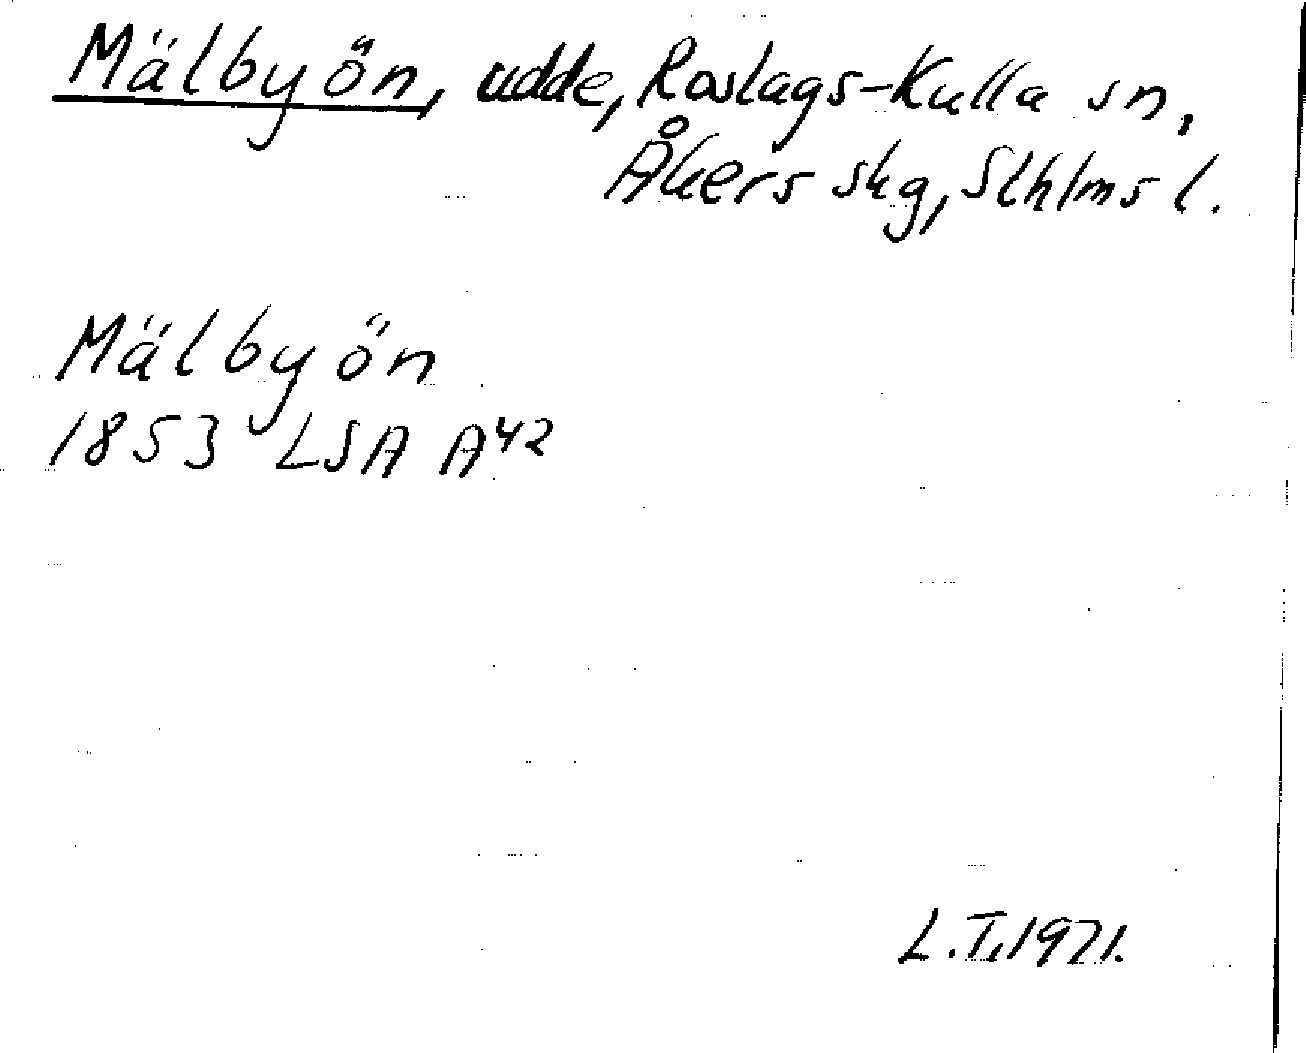 Mälbyön, udde, Roslags-Kulla sn,
Åkers skg, Sthlms l.
Mälbyön
1853 LSA A42
L.T. 1971.